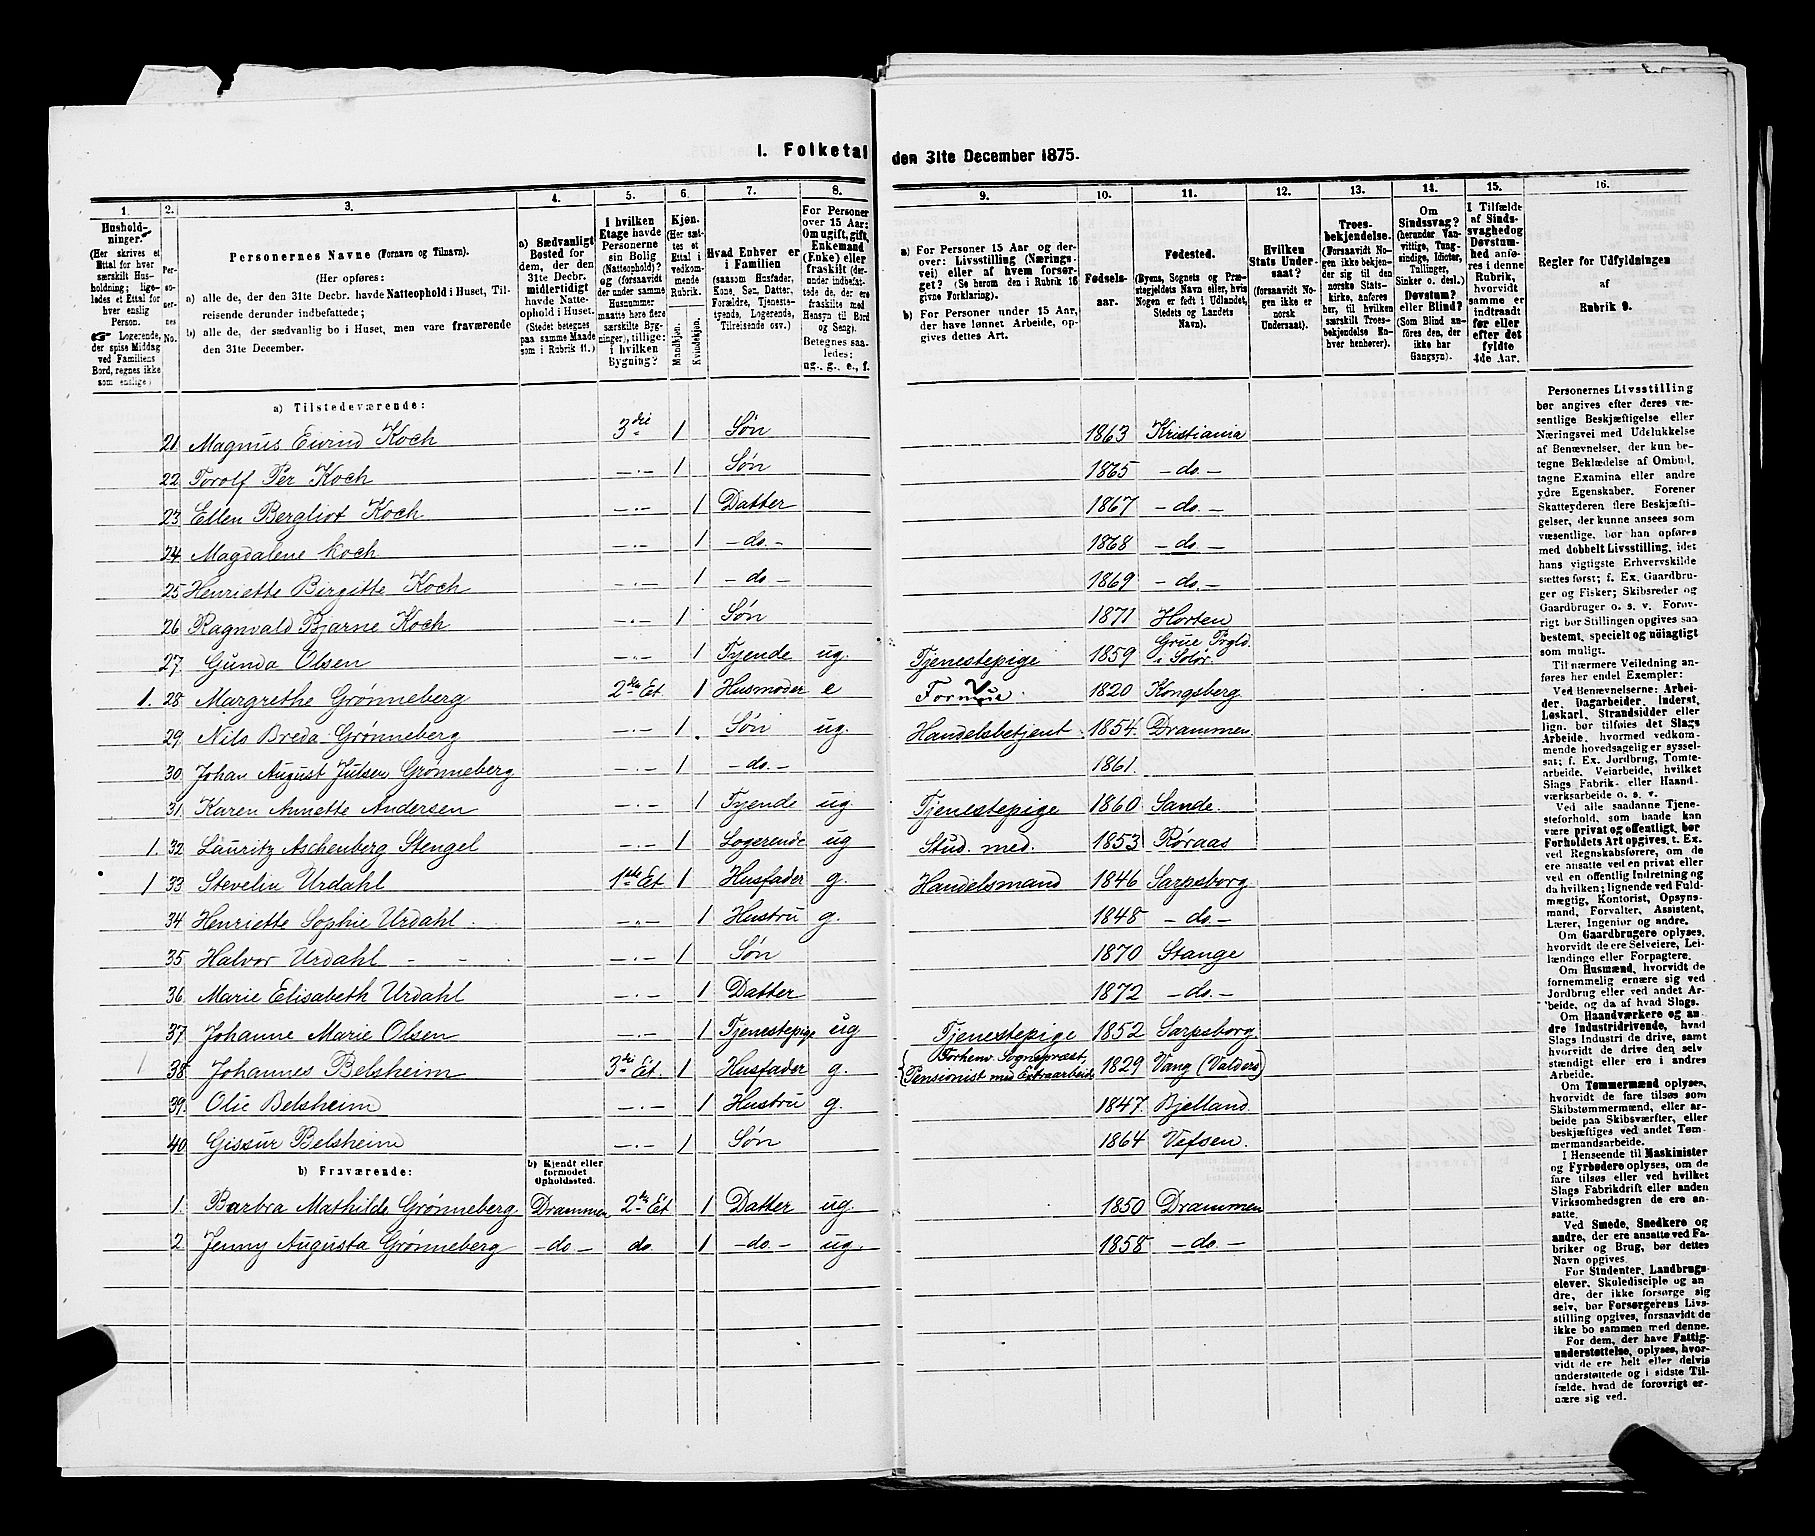 I. Folketal den 31te December 1875.
1. 2. 3. 4. 5. 6. 7. 8. 9. 10. 11. 12. 13. 14. 15. 16.
Hushold-
ninger.
(Her skrives et
Ettal for hver
særskilt Hus-
holdning; lige-
ledes et Ettal for
hver enslig
Person.
☞ Logerende,
der spise Middag
ved Familiens
Bord, regnes ikke
som enslige)
Per-
so-
ner-
nes
No.
Personernes Navne (Fornavn og Tilnavn).
(Her opføres:
a) alle de, der den 31te Decbr. havde Natteophold i Huset, Til-
reisende derunder indbefattede;
b) alle de, der sædvanlig bo i Huset, men vare fraværende
den 31te December.
a) Sædvanligt
Bosted for
dem, der den
31te Decbr.
midlertidigt
havde Natte-
ophold i Huset.
(Stedet betegnes
paa samme Maade
som i Rubrik 11.)
I hvilken
Etage havde
Personerne
sin Bolig
(Natteophold)?
og (forsaavidt
der under samme
Husnummer
maatte høre flere
særskilte Byg-
ninger), tillige:
i hvilken
Bygning?
Kjøn.
(Her sæt-
tes et
Ettal i
vedkom-
mende
Rubrik.
Mandkjøn.
Kvindekjøn.
Hvad Enhver er
i Familien
(saasom Husfader,
Kone, Søn, Datter,
Forældre, Tjeneste-
tyende, Logerende,
Tilreisende osv.)
For Personer
over 15 Aar:
Om ugift, gift,
Enkemand
(Enke) eller
fraskilt (der-
under indbefat-
tede de, der ere
fraskilte med
Hensyn til Bord
og Seng).
Betegnes saa-
ledes:
ug., g., e., f.
a) For Personer 15 Aar og der-
over: Livsstilling (Nærings-
vei) eller af hvem forsør-
get? (Se herom den i Rubrik 16
givne Forklaring).
b) For Personer under 15 Aar,
der have lønnet Arbeide, op-
gives dettes Art.
Fødsels-
aar.
Fødested.
(Byens, Sognets og Præ-
stegjeldets Navn eller, hvis
Nogen er født i Udlandet,
Stedets og Landets
Navn).
Hvilken
Stats Under-
saat?
(forsaavidt No-
gen ikke er
norsk
Undersaat).
Troes-
bekjendelse.
(Forsaavidt No-
gen ikke bekjen-
der sig til den
norske Stats-
kirke, anføres
her, til hvilken
særskilt Troes-
bekjendelse En-
hver henhører).
Om
Sindssvag?
(herunder Van-
vittige, Tung-
sindige, Idioter,
Tullinger,
Sinker o. desl.)
Døvstum?
eller Blind?
(Som Blind an-
føres den, der
ikke har
Gangsyn).
I Tilfælde
af Sinds-
svaghed og
Døvstum-
hed anfø-
res i denne
Rubrik,
hvorvidt
samme er
indtraadt
før eller
efter det
fyldte
4de Aar.
Regler for Udfyldningen
af
Rubrik 9.
a) Tilstedeværende:
21 Magnus Eivind Koch 3die 1 Søn 1863 Kristiania
22 Torolf Per Koch -"- 1 Søn 1865 -do.-
23 Ellen Bergliot Koch -"- 1 Datter 1867 -do.-
24 Magdalene Koch -"- 1 -do.- 1868 -do.-
25 Henriette Birgitte Koch -"- 1 -do- 1869 -do.-
26 Ragnvald Bjarne Koch -"- 1 Søn 1871 Horten
27 Gunda Olsen -"- 1 Tyende ug. Tjenestepige 1859 Grue Prgld. i Solør
1. 28 Margrethe Grønneberg 2den Et 1 Husmoder e Formue 1820 Kongsberg
29 Nils Breda Grønneberg -"- 1 Søn ug. Handelsbetjent 1854. Drammen
30 Johan August Julsen Grønneberg -"- 1 -do.- 1861.
31 Karen Annette Andersen -"- 1 Tyende ug Tjenestepige 1860 Sande.
1. 32 Lauritz Aschenberg Stengel 1 Logerende ug Stud. med. 1853 Røraas
1 33 Stevelin Urdahl 1ste Et 1 Husfader g. Handelsmand 1846 Sarpsborg
34 Henriette Sophie Urdahl -"- 1 Hustru g. 1848 -do.-
35 Halvor Urdahl -"- 1 Søn 1870 Stange
36 Marie Elisabeth Urdahl -"- 1 Datter 1872 -do.-
37 Johanne Marie Olsen -"- 1 Tjenestepige ug Tjenestepige 1852 Sarpsborg
1 38 Johannes Belsheim 3die Et. 1 Husfader g. Forhenv. Sognepræst, Pensionist med Extraarbeide 1829 Vang (Valders)
39. Olie Belsheim -"- 1 Hustru g. 1847 Bjelland
40 Gissur Belsheim -"- 1 Søn 1864 Vefsen.
b) Fraværende:
b) Kjendt eller
formodet
Opholdssted.
1. Barbra Mathilde Grønneberg Drammen 2den Et 1 Datter ug. 1850 Drammen
2 Jenny Augusta Grønneberg -do- do. 1 -do- ug. 1858 -do-
Personernes Livsstilling
bør angives efter deres væ-
sentlige Beskjæftigelse eller
Næringsvei med Udelukkelse
af Benævnelser, der kun be-
tegne Beklædelse af Ombud,
tagne Examina eller andre
ydre Egenskaber. Forener
Skatteyderen flere Beskjæfti-
gelser, der kunne ansees som
væsentlige, bør han opføres
med dobbelt Livsstilling, idet
hans vigtigste Erhvervskilde
sættes først; f. Ex. Gaardbru-
ger og Fisker; Skibsreder og
Gaardbruger o. s. v. Forøv-
rigt bør Stillingen opgives saa
bestemt, specielt og nøiagtigt
som muligt.
Til nærmere Veiledning an-
føres her endel Exempler:
Ved Benævnelserne: Arbei-
der, Dagarbeider, Inderst,
Løskarl, Strandsidder eller
lign. bør tilføies det Slags
Arbeide, hvormed vedkom-
mende hovedsagelig er syssel-
sat; f. Ex. Jordbrug, Tomte-
arbeide, Veiarbeide, hvilket
Slags Fabrik- eller Haand-
værksarbeide o. s. v.
Ved alle saadanne Tjene-
steforhold, som baade kan
være privat og offentligt, bør
Forholdets Art opgives, t. Ex.
ved Regnskabsførere, om de
ere ansatte ved en privat eller
ved en offentlig Indretning og
da hvilken; lignende ved Fuld-
mægtig, Kontorist, Opsyns-
mand, Forvalter, Assistent,
Lærer, Ingeniør og andre.
Om Gaardbrugere oplyses,
hvorvidt de ere Selveiere, Lei-
lændinge eller Forpagtere.
Om Husmænd, hvorvidt de
fornemmelig ernære sig ved
Jordbrug eller ved andet Ar-
beide, og da af hvad Slags.
Om Haandværkere og an-
dre Industridrivende, hvad
Slags Industri de drive, samt
hvorvidt de drive den selv
stændigt eller ere i andres
Arbeide.
Om Tømmermænd oplyses,
hvorvidt de fare tilsøs som
Skibstømmermænd, eller ar-
beide paa Skibsværfter, eller
beskjæftiges ved andet Tøm-
mermandsarbeide.
I Henseende til Maskinister
og Fyrbødere oplyses, om de
fare tilsøs eller ved hvilket
Slags Fabrikdrift eller anden
Virksomhedsgren de ere an-
satte.
Ved Smede, Snedkere og
andre, der ere ansatte ved Fa-
briker og Brug, bør dettes
Navn opgives.
For Studenter, Landbrugs-
elever, Skoledisciple og an
dre, der ikke forsørge sig
selv, bør Forsørgerens Livs-
stilling opgives, forsaavidt de
ikke bo sammen med denne.
For dem, der have Fattig-
understøttelse, oplyses, hvor-
vidt de ere helt eller delvis
understøttede og i sidste Til-
fælde, hvad de forøvrigt er-
nære sig ved.